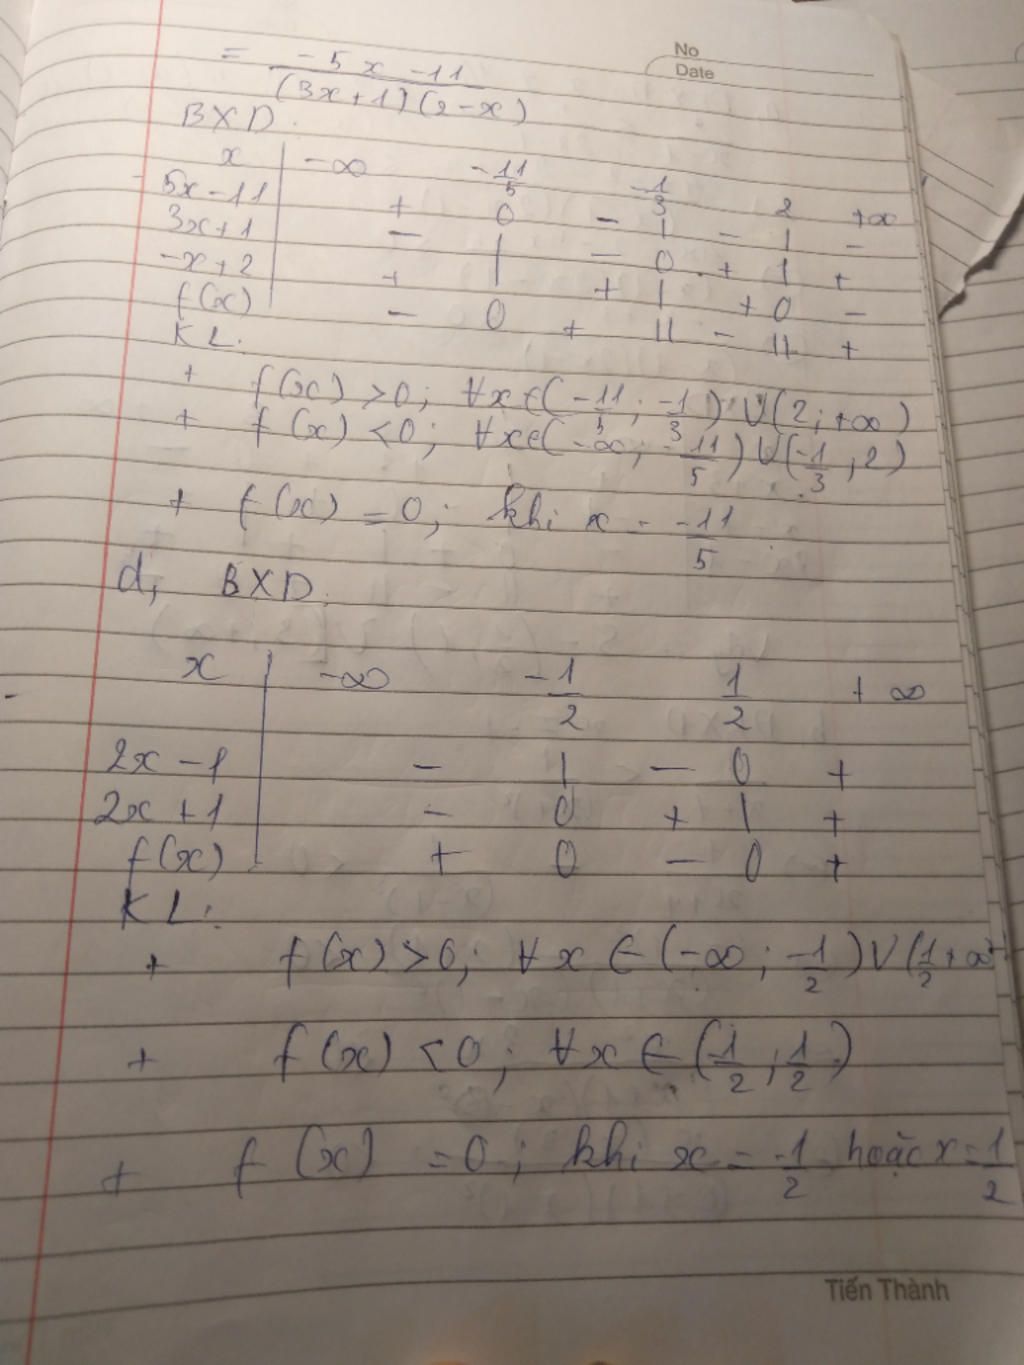 No
Date
= -5x-11 / (3x+1)(2-x)
BXD.
x | -∞ -11/5 -1/3 2 +∞
-5x-11 | + 0 - | - | -
3x+1 | - | - 0 + | +
-x+2 | + | + | + 0 -
f(x) | - 0 + || - || +
KL.
+ f(x) >0; ∀x∈(-11/5; -1/3) ∪ (2; +∞)
+ f(x) <0; ∀x∈(-∞; -11/5) ∪ (-1/3, 2)
+ f(x) =0; khi x = -11/5
d, BXD.
x | -∞ -1/2 1/2 +∞
2x-1 | - | - 0 +
2x+1 | - 0 + | +
f(x) | + 0 - 0 +
KL:
+ f(x) >0; ∀x ∈ (-∞; -1/2) ∪ (1/2 +∞
+ f(x) <0; ∀x ∈ (-1/2, 1/2)
+ f(x) =0; khi x = -1/2 hoặc x = 1/2
Tiến Thành